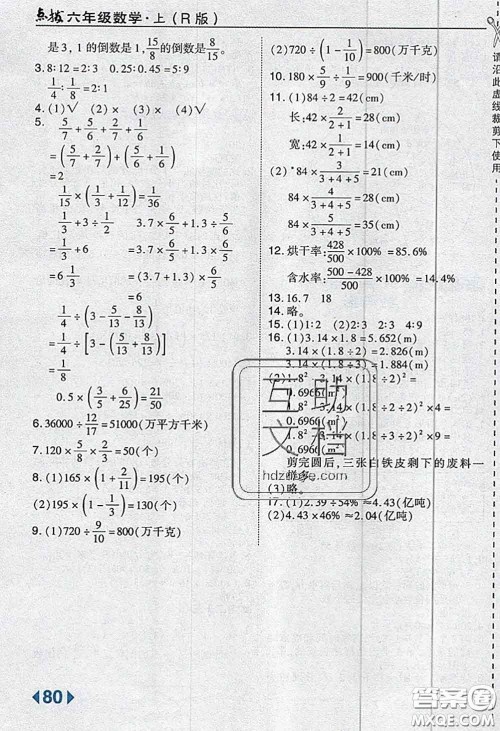 点拨 六年级数学·上(R版)
是3,1的倒数是1,15/8的倒数是8/15。
3. 8∶12=2∶3 0.25∶0.45=5∶9
1/4∶1/8=2∶1
4. (1)√ (2)× (3)× (4)√
5. 5/7+5/6+2/7+1/6
=(5/7+2/7)+(5/6+1/6)
=2
1/15×(1/3+1/12)=1/36
1/3+3÷1/2 3.7×6/5+1.3÷5/6
=1/3+6 =3.7×6/5+1.3×6/5
=6 1/3 =(3.7+1.3)×6/5
=6
1/4÷(3-5/13-8/13)
=1/4÷[3-(5/13+8/13)]
=1/8
0.5×(3/5+6/25)=21/50
6. 36000÷12/17=51000(万平方千米)
7. 120×5/8×4/5=60(个)
8. (1)195-195×1/3=130(个)
(2)195×(1-1/3)=130(个)
9. (1)720÷9/10=800(万千克)
(2)720÷(1-1/10)=800(万千克)
10. 180×5/9÷1/9=900(千米/时)
11. (1)84÷2=42(cm)
长:42×2/(2+1)=28(cm)
宽:42×1/(2+1)=14(cm)
(2)84×3/(3+4+5)=21(cm)
84×4/(3+4+5)=28(cm)
84×5/(3+4+5)=35(cm)
12. 烘干率:428/500×100%=85.6%
含水率:(500-428)/500×100%=14.4%
13. 16.7 18
14. 略。
15. (1)1∶2 (2)2∶3 4∶9
16. (1)3.14×1.8=5.652(m)
3.14×(1.8÷2)=2.826(m)
3.14×(1.8÷3)=1.884(m)
(2)1.8²-3.14×(1.8÷2)²=
0.6966(m²)
1.8²-3.14×(1.8÷2÷2)²×4=
0.6966(m²)
1.8²-3.14×(1.8÷3÷2)²×9=
0.6966(m²)
剪完圆后,三张白铁皮剩下的废料一
样多。
(3)略。
17. (1)2.39÷54%≈4.43(亿吨)
(2)4.43×46%≈2.04(亿吨)
请沿此虚线裁剪下使用
互助
文档
hdzuoye.com
80
答案圈
MXQE.COM